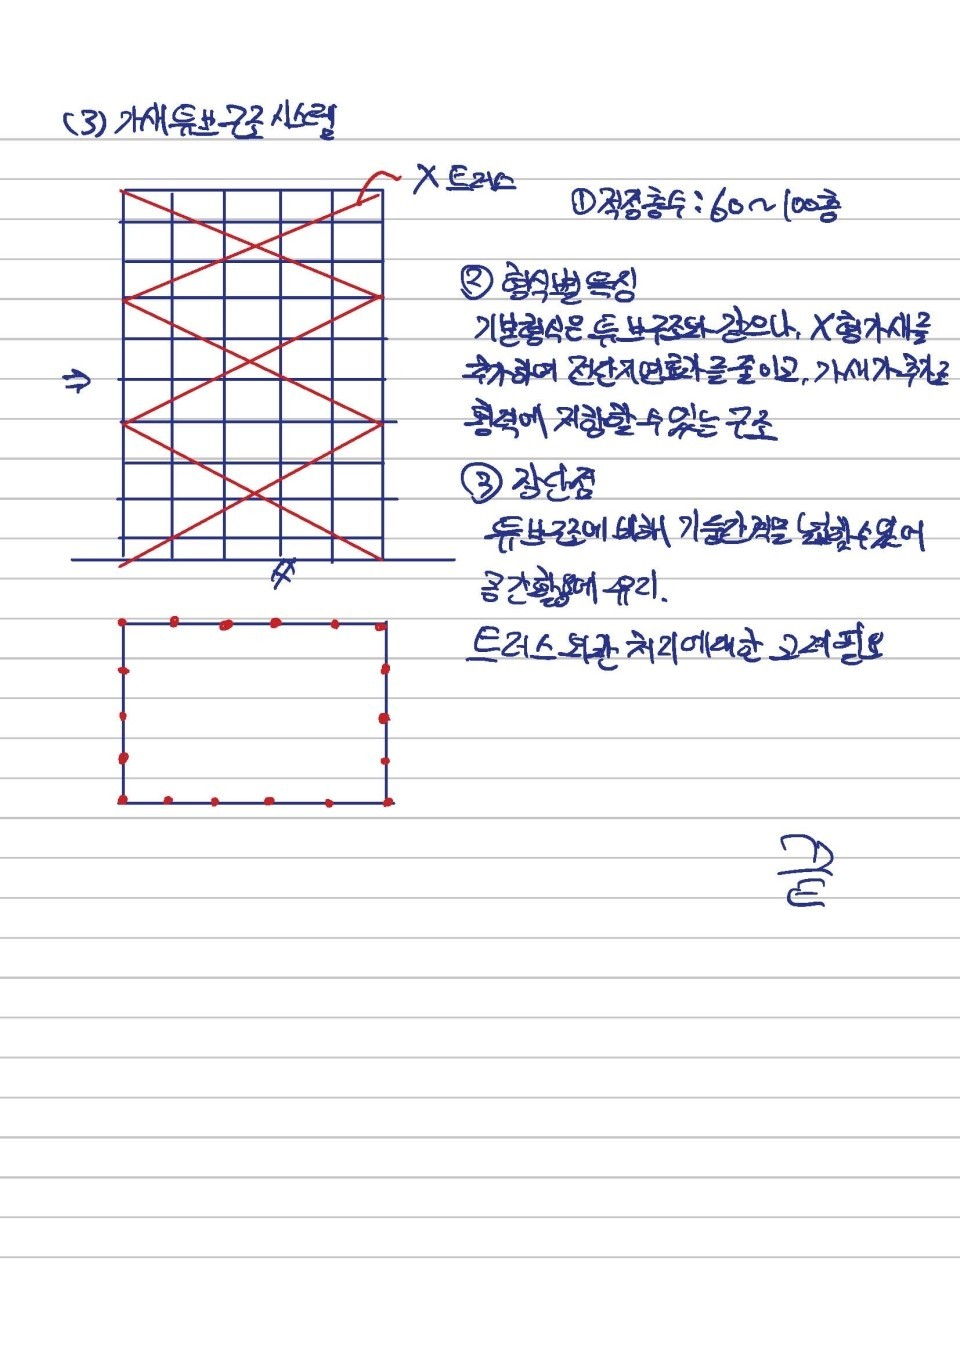 (3) 가새튜브구조시스템
X 트러스
① 적정층수 : 60~100층
② 형식별 특징
기본형식은 튜브구조와 같으나, X형가새를
추가하여 전단지연효과를 줄이고, 가새가 추가로
횡력에 저항할 수 있는 구조
③ 장단점
튜브구조에 비해 기둥간격을 넓힐수있어
공간활용에 유리.
트러스 외관 처리에대한 고려필요
끝